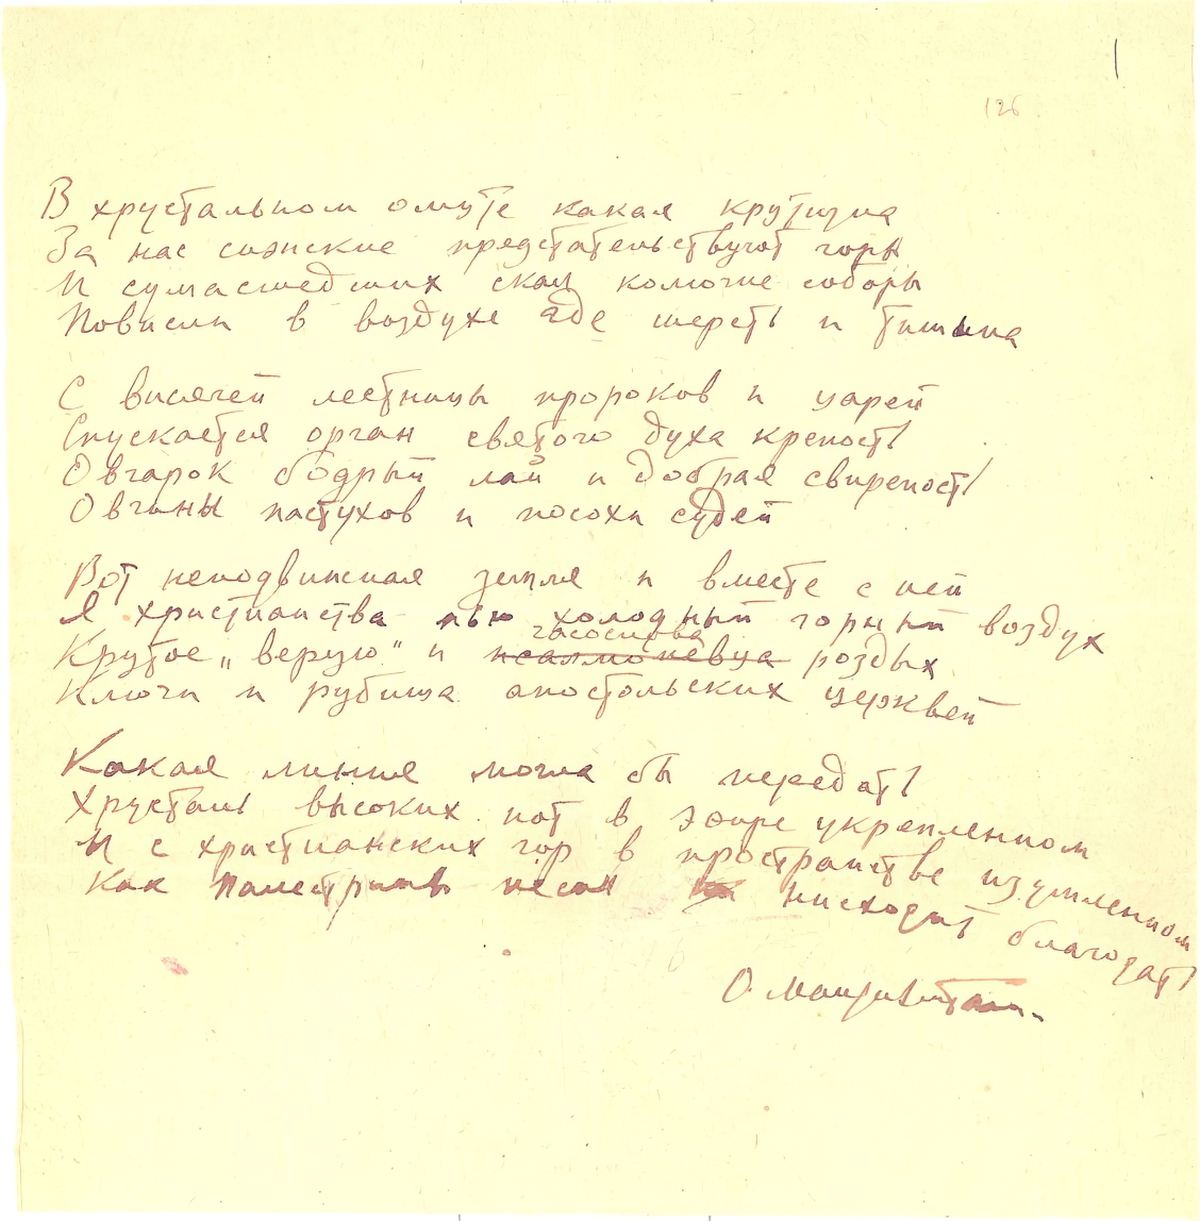 126
В хрустальном омуте какая крутизна
За нас сиэнские предстательствуют горы
И сумасшедших скал колючие соборы
Повисли в воздухе где шерсть и тишина
С висячей лестницы пророков и царей
Спускается орган святого духа крепость
Овчарок бодрый лай и добрая свирепость
Овчины пастухов и посохи судей
Вот неподвижная земля и вместе с ней
Я христианства пью холодный горный воздух
часослова
Крутое „верую" и псалмопевца роздых
Ключи и рубища апостольских церквей
Какая линия могла бы передать
Хрусталь высоких нот в эфире укрепленном
И с христианских гор в пространстве изумленном
Как Палестрины песня нисходит благодать
О Мандельштам.